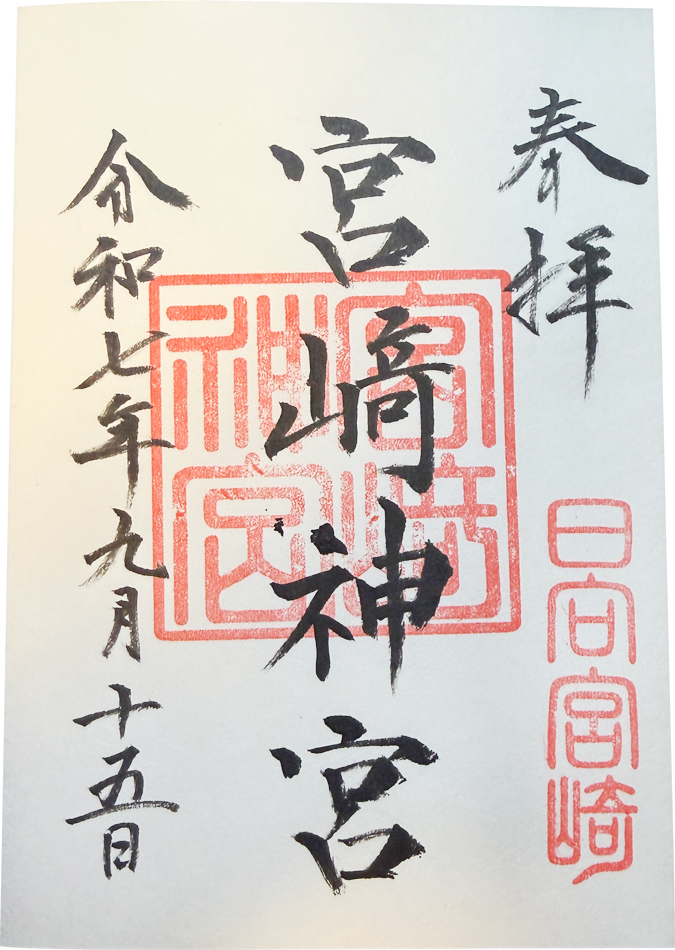 奉拝
日向宮崎
宮崎神宮
宮崎神宮
令和七年九月十五日